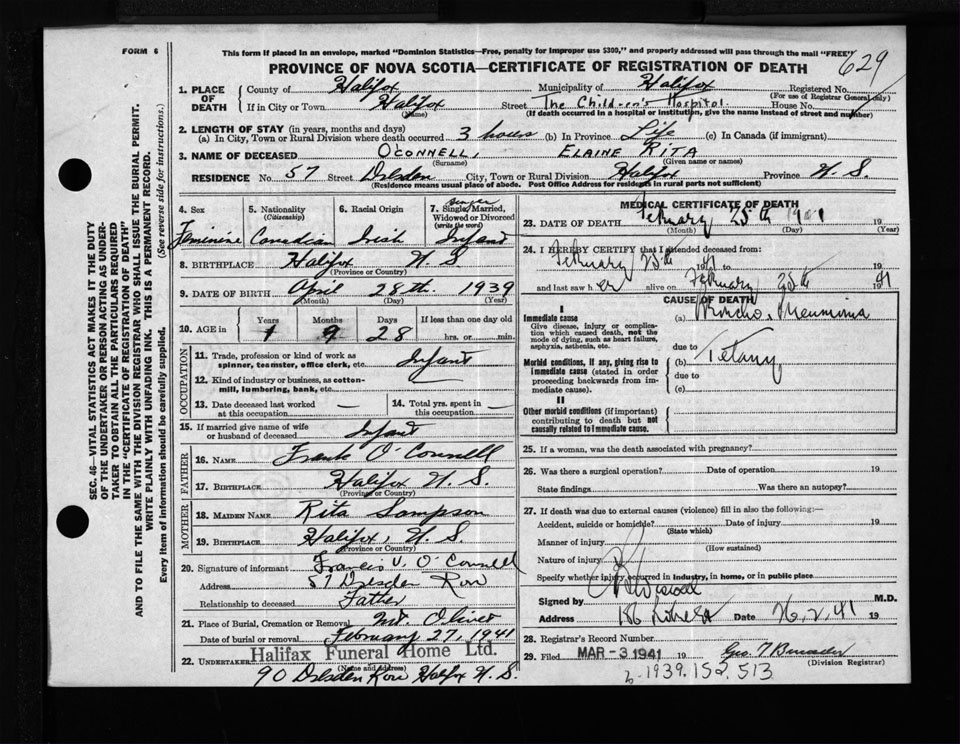 FORM 6
This form if placed in an envelope, marked "Dominion Statistics—Free, penalty for improper use $300," and properly addressed will pass through the mail "FREE"
629
PROVINCE OF NOVA SCOTIA—CERTIFICATE OF REGISTRATION OF DEATH
1. PLACE OF DEATH
County of Halifax Municipality of Halifax Registered No.
(For use of Registrar General only)
If in City or Town Halifax Street The Children's Hospital House No.
(Name) (If death occurred in a hospital or institution, give name instead of street and number)
2. LENGTH OF STAY (in years, months and days)
(a) In City, Town or Rural Division where death occurred 3 hours (b) In Province Life (c) In Canada (if immigrant)
3. NAME OF DECEASED O'CONNELL, ELAINE RITA
(Surname) (Given name or names)
RESIDENCE No. 57 Street Dresden City, Town or Rural Division Halifax Province N. S.
(Residence means usual place of abode. Post Office Address for residents in rural parts not sufficient)
4. Sex Feminine
5. Nationality (Citizenship) Canadian
6. Racial Origin Irish
7. Single, Married, Widowed or Divorced (write the word) Single Infant
8. BIRTHPLACE Halifax N S
(Province or Country)
9. DATE OF BIRTH April 28th 1939
(Month) (Day) (Year)
10. AGE in Years Months Days If less than one day old
1 9 28 hrs. or min.
OCCUPATION
11. Trade, profession or kind of work as spinner, teamster, office clerk, etc. Infant
12. Kind of industry or business, as cotton-mill, lumbering, bank, etc.
13. Date deceased last worked at this occupation —
14. Total yrs. spent in this occupation —
15. If married give name of wife or husband of deceased Infant
FATHER
16. NAME Frank O'Connell
17. BIRTHPLACE Halifax N. S.
(Province or Country)
MOTHER
18. MAIDEN NAME Rita Sampson
19. BIRTHPLACE Halifax, N. S.
(Province or Country)
20. Signature of informant Francis V. O'Connell
Address 57 Dresden Row
Relationship to deceased Father
21. Place of Burial, Cremation or Removal Mt. Olivet
Date of burial or removal February 27, 1941
22. UNDERTAKER Halifax Funeral Home Ltd.
(Name and Address)
90 Dresden Row Halifax N. S.
MEDICAL CERTIFICATE OF DEATH
23. DATE OF DEATH February 25th 1941 19
(Month) (Day) (Year)
24. I HEREBY CERTIFY that I attended deceased from:
February 25th 1941 to 19
and last saw her alive on February 25th 1941
CAUSE OF DEATH
I
Immediate cause
Give disease, injury or complication which caused death, not the mode of dying, such as heart failure, asphyxia, asthenia, etc.
(a) Broncho-Pneumonia
due to
Morbid conditions, if any, giving rise to immediate cause (stated in order proceeding backwards from immediate cause).
(b) Tetany
due to
(c)
II
Other morbid conditions (if important) contributing to death but not causally related to immediate cause.
25. If a woman, was the death associated with pregnancy?
26. Was there a surgical operation? Date of operation 19
State findings Was there an autopsy?
27. If death was due to external causes (violence) fill in also the following:—
Accident, suicide or homicide? Date of injury 19
(State which)
Manner of injury
(How sustained)
Nature of injury
Specify whether injury occurred in industry, in home, or in public place
Signed by M.D.
Address Date 26.2.41 19
28. Registrar's Record Number
29. Filed MAR -3 1941 19
(Division Registrar)
1939.152.513
SEC. 46—VITAL STATISTICS ACT MAKES IT THE DUTY
OF THE UNDERTAKER OR PERSON ACTING AS UNDER-
TAKER TO OBTAIN ALL THE PARTICULARS REQUIRED
IN THE "CERTIFICATE OF REGISTRATION OF DEATH"
AND TO FILE THE SAME WITH THE DIVISION REGISTRAR WHO SHALL ISSUE THE BURIAL PERMIT.
WRITE PLAINLY WITH UNFADING INK. THIS IS A PERMANENT RECORD.
Every item of information should be carefully supplied. (See reverse side for instructions.)